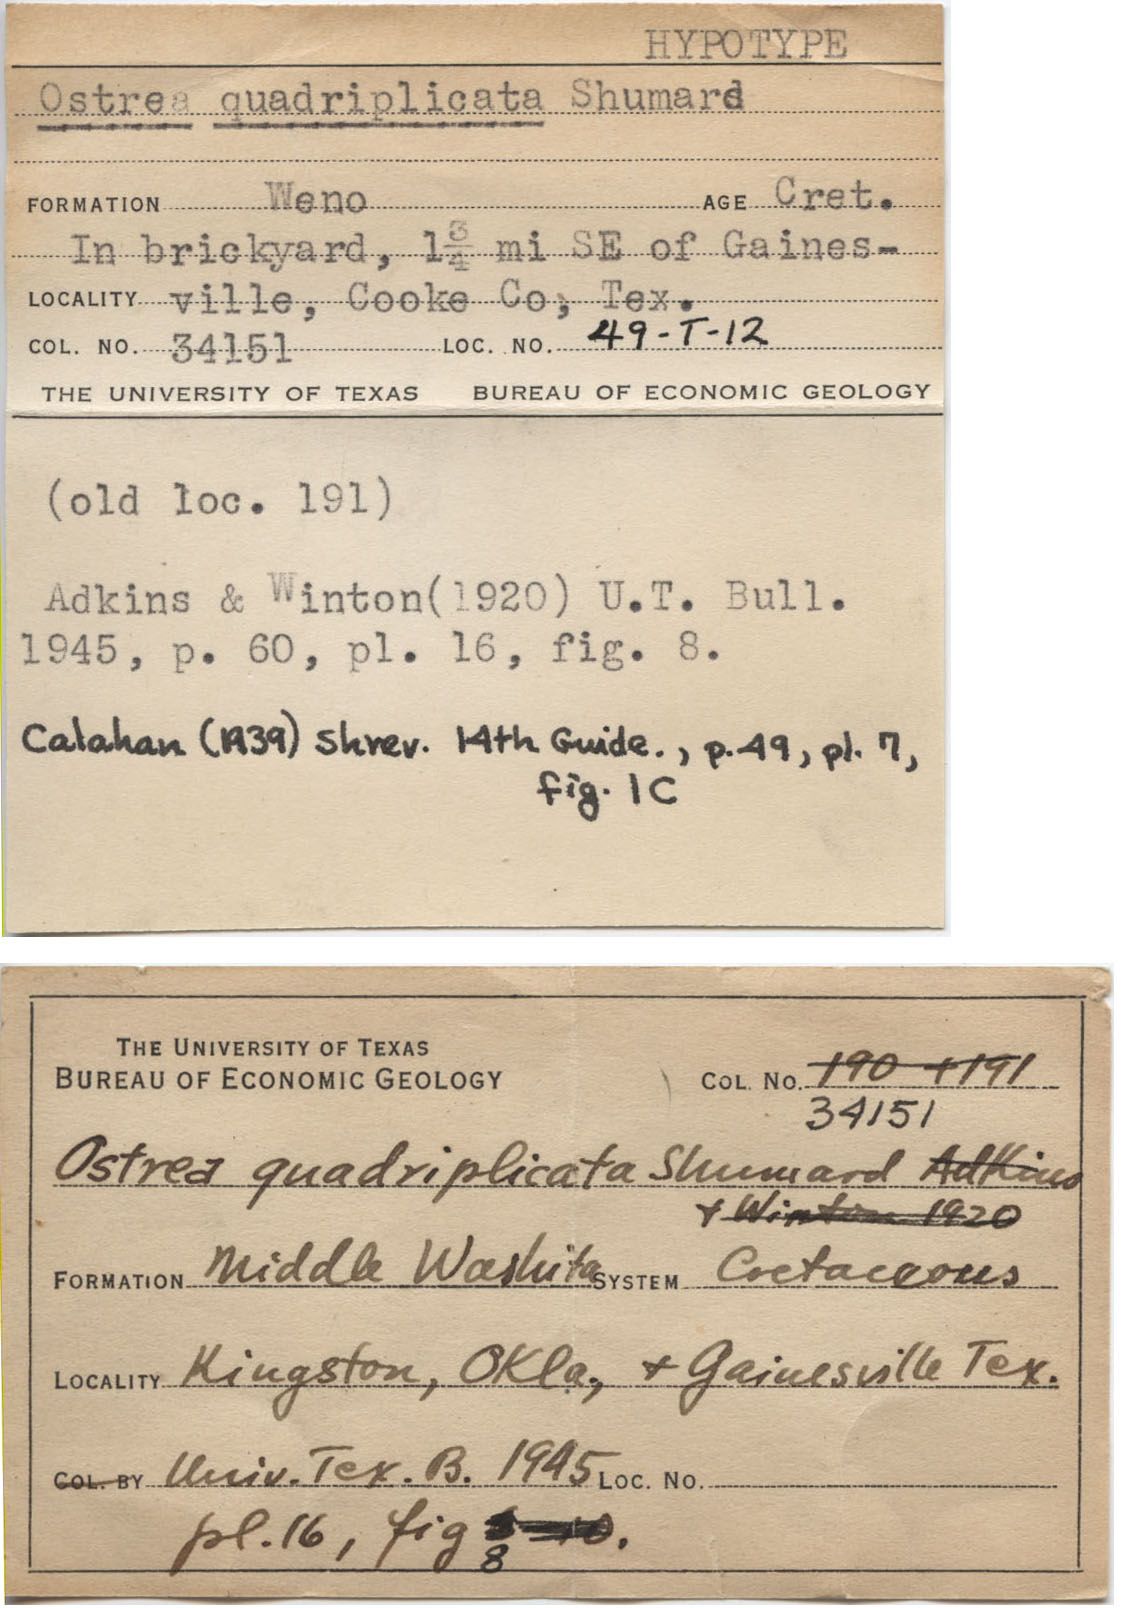 HYPOTYPE
Ostrea quadriplicata Shumard
FORMATION Weno AGE Cret.
In brickyard, 1 3/4 mi SE of Gaines-
LOCALITY ville, Cooke Co, Tex.
COL. NO. 34151 LOC. NO. 49-T-12
THE UNIVERSITY OF TEXAS BUREAU OF ECONOMIC GEOLOGY
(old loc. 191)
Adkins & Winton(1920) U.T. Bull.
1945, p. 60, pl. 16, fig. 8.
Calahan (1939) Shrev. 14th Guide., p.49, pl. 7,
fig. 1C
THE UNIVERSITY OF TEXAS
BUREAU OF ECONOMIC GEOLOGY COL. NO. 190 + 191
34151
Ostrea quadriplicata Shumard Adkins
+ Winton 1920
FORMATION Middle Washita SYSTEM Cretaceous
LOCALITY Kingston, Okla, + Gainesville Tex.
COL. BY Univ. Tex. B. 1945 LOC. NO.
pl. 16, fig 10.
8